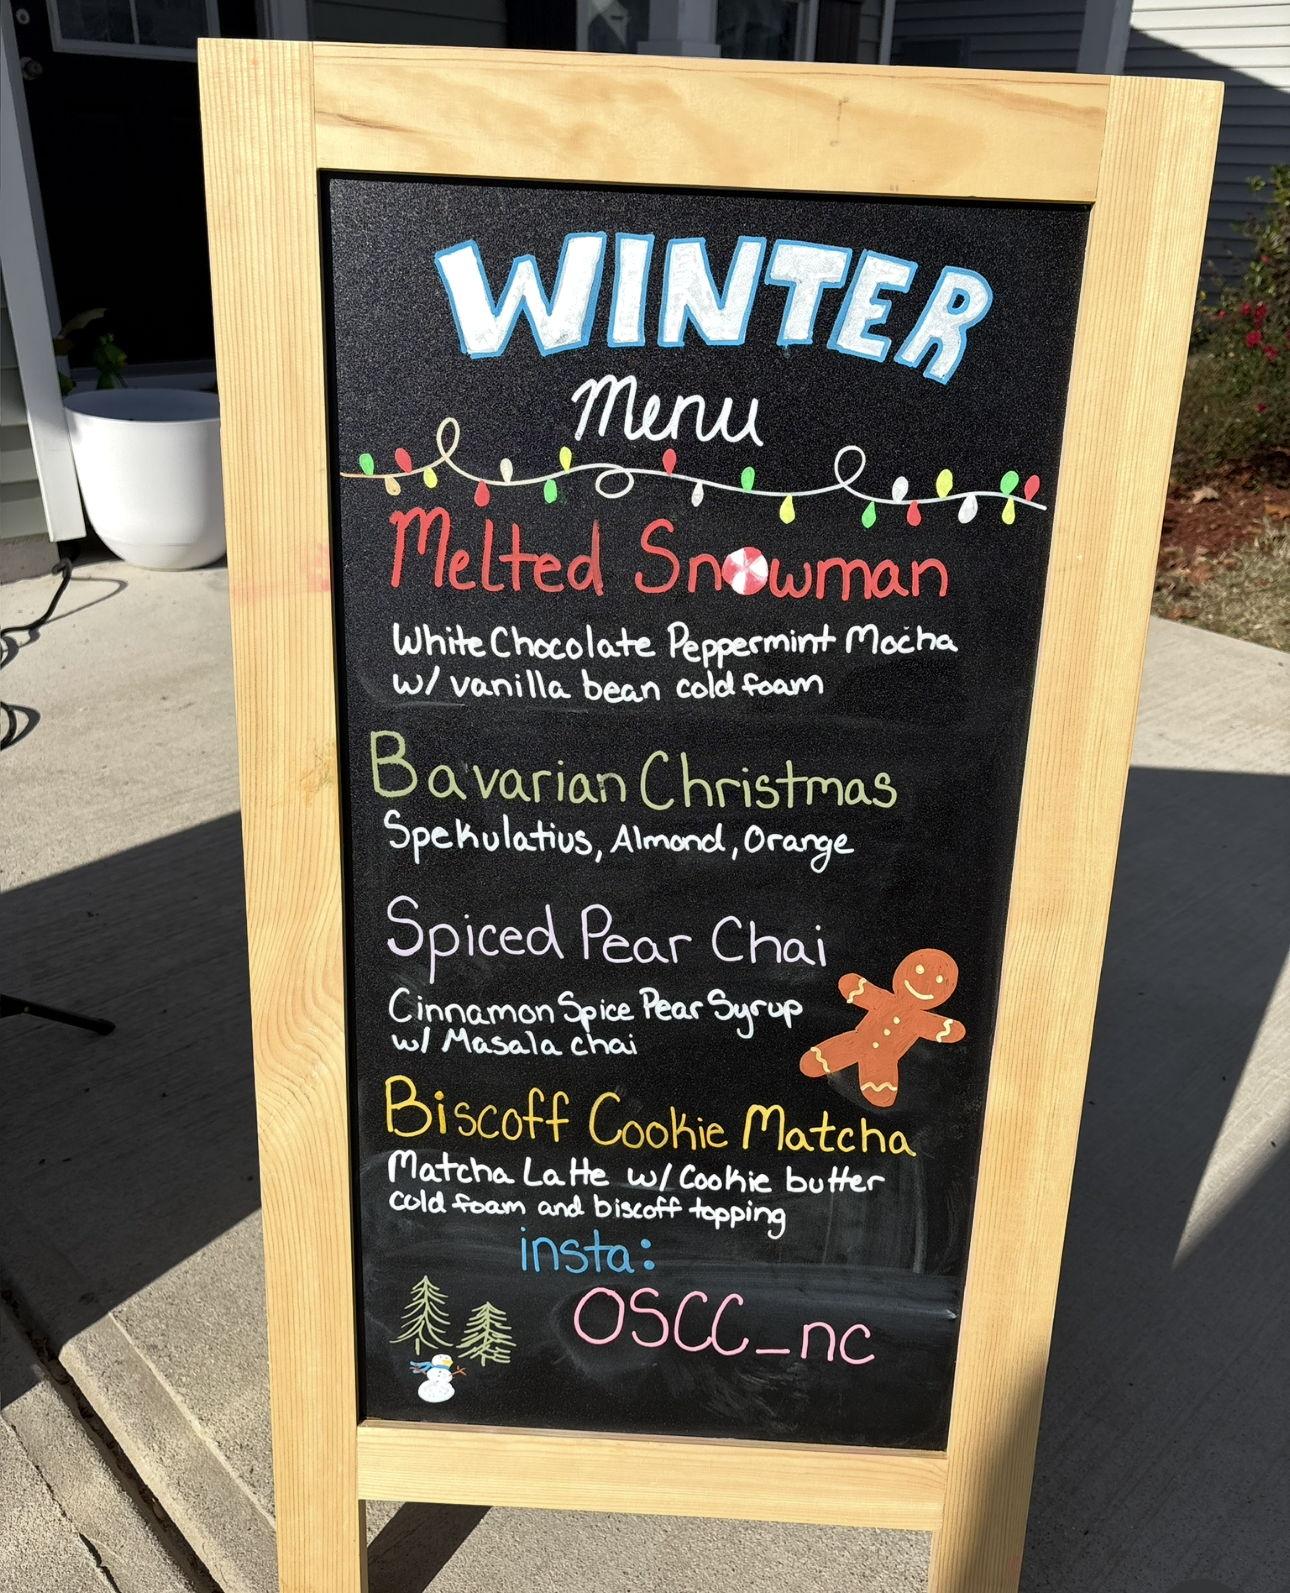 WINTER
Menu
Melted Snowman
White Chocolate Peppermint Mocha
w/ vanilla bean cold foam
Bavarian Christmas
Spekulatius, Almond, Orange
Spiced Pear Chai
Cinnamon Spice Pear Syrup
w/ Masala chai
Biscoff Cookie Matcha
Matcha Latte w/ Cookie butter
cold foam and biscoff topping
insta:
OSCC_nc